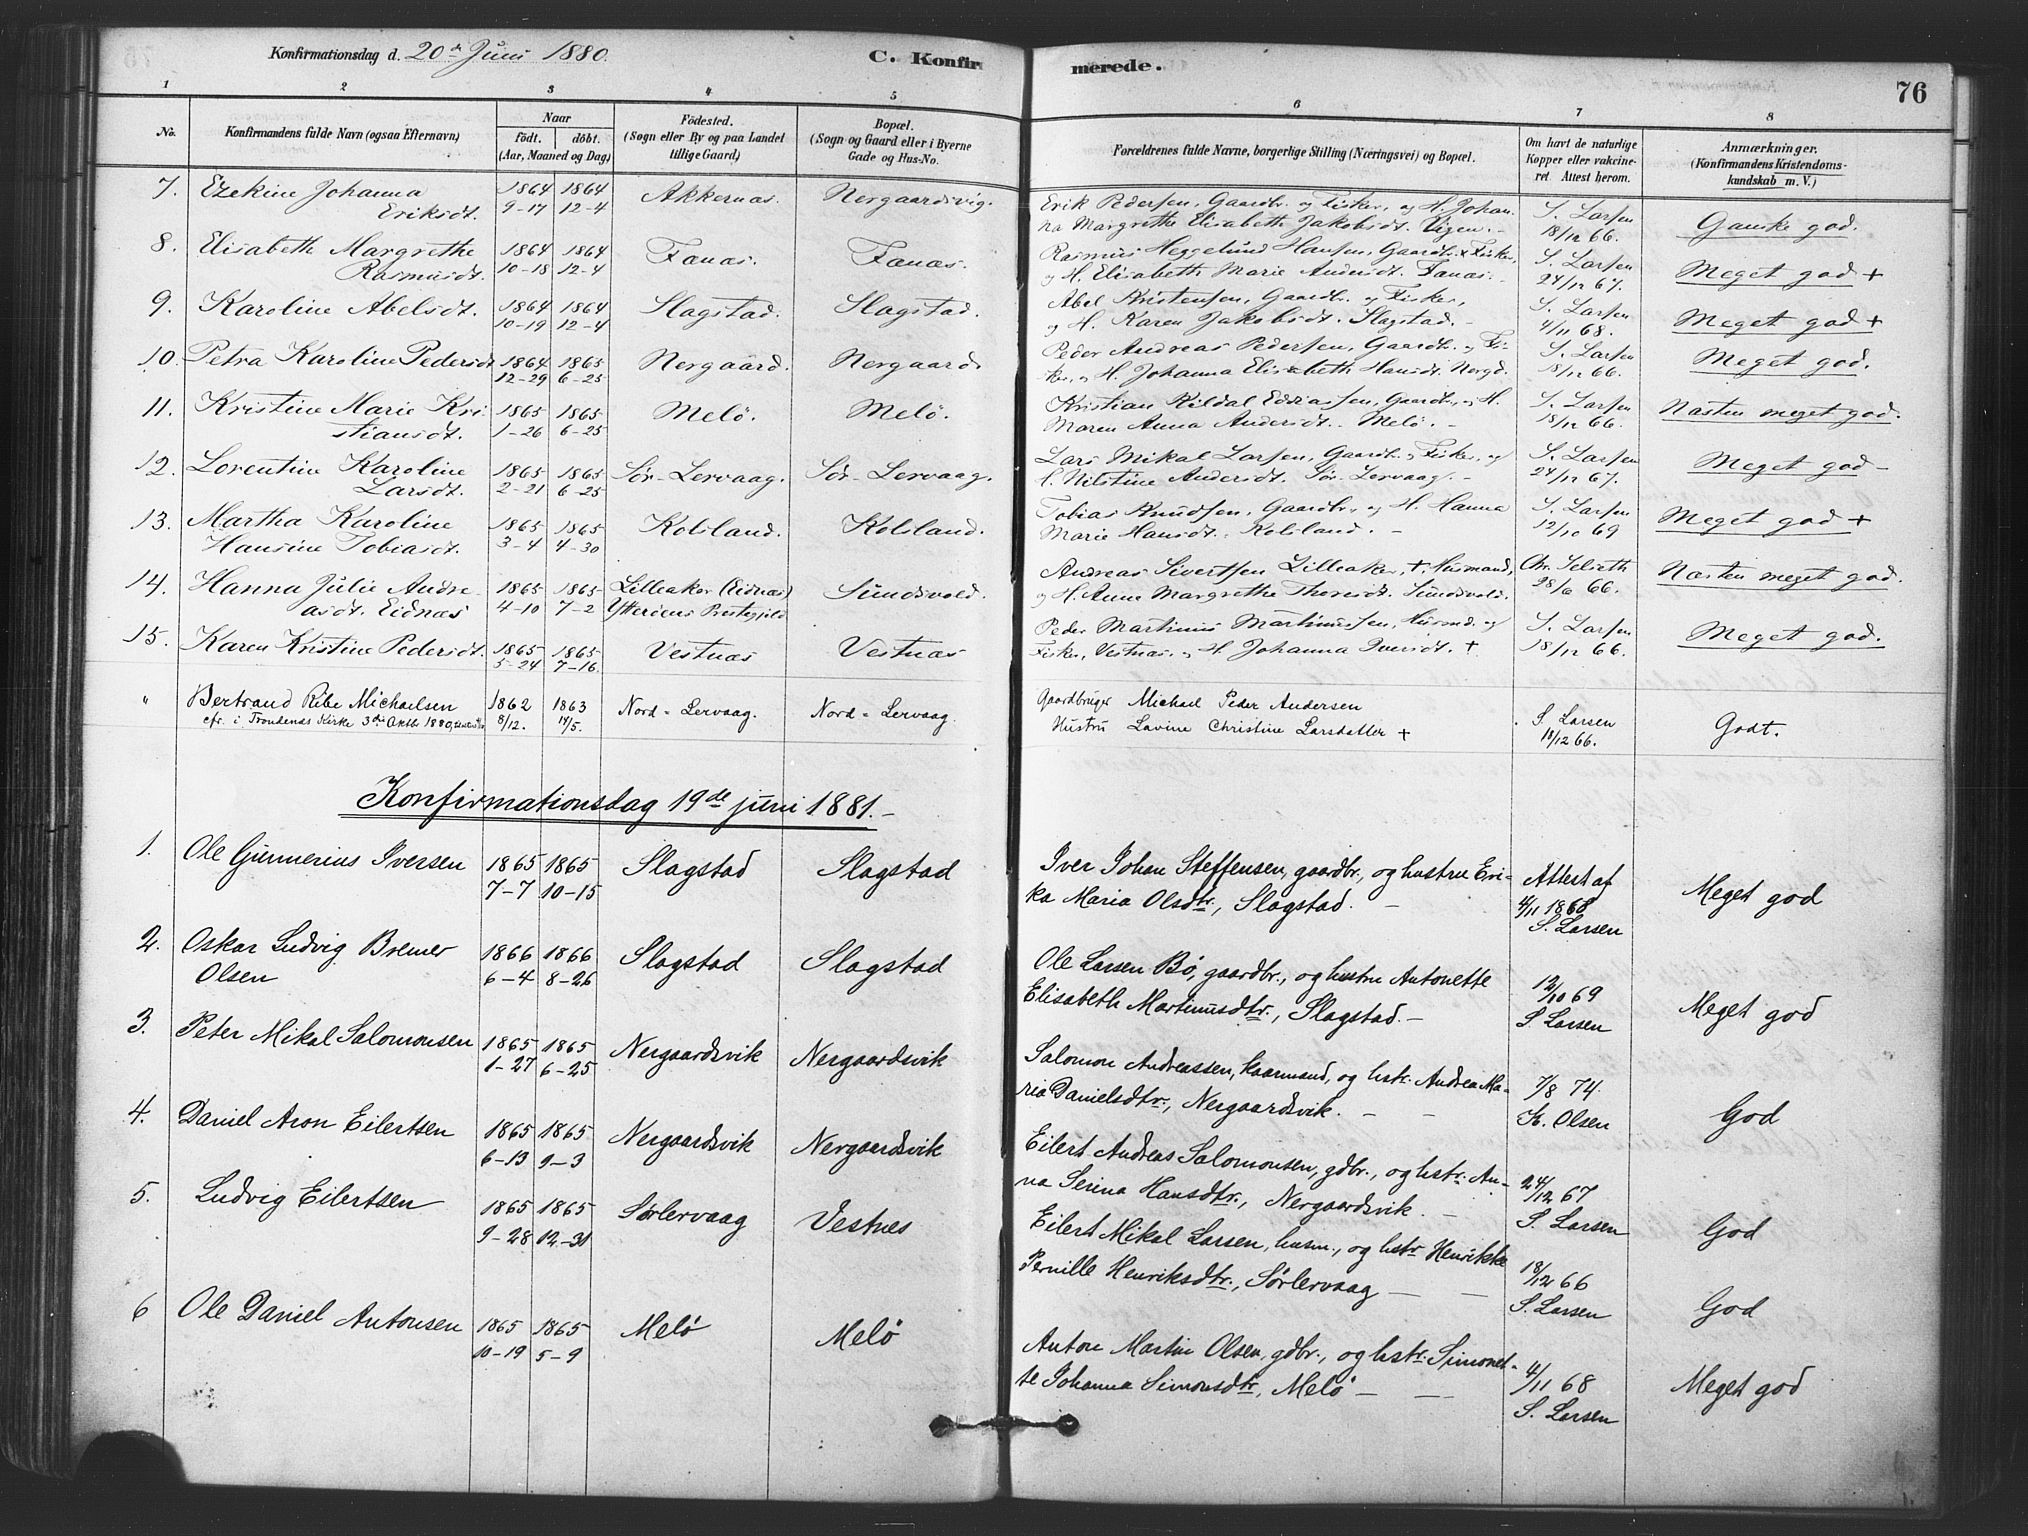 Konfirmationsdag d. 20de Juni 1880.
C. Konfirmerede.
76
1 2 3 4 5 6 7 8
No.
Konfirmandens fulde Navn (ogsaa Efternavn)
Naar
Födt. döbt.
(Aar, Maaned og Dag)
Födested.
(Sogn eller By og paa Landet
tillige Gaard)
Bopæl.
(Sogn og Gaard eller i Byerne
Gade og Hus-No.
Forældrenes fulde Navne, borgerlige Stilling (Næringsvei) og Bopæl.
Om havt de naturlige
Kopper eller vakcine-
ret. Attest herom.
Anmærkninger.
(Konfirmandens Kristendoms-
kundskab m. V.)
7. Ezekine Johanna 1864 1864 Akkernæs. Nergaardsvig. Erik Pedersen, Gaardbr. og Fisker, og H. Johan- S. Larsen Ganske god.
Eriksdt. 9-17 12-4 na Margrethe Elisabeth Jakobsdt. Vigen. - 18/12 66.
8. Elisabeth Margrethe 1864 1864 Fanæs. Fanæs. Rasmus Heggelund Hansen, Gaardbr. & Fisker, S. Larsen Meget god +
Rasmusdt. 10-18 12-4 og H. Elisabeth Marie Andersdt. Fanæs. - 24/12 67.
9. Karoline Abelsdt. 1864 1864 Slagstad. Slagstad. Abel Kristensen, Gaardbr. og Fisker, S. Larsen Meget god +
10-19 12-4 og H. Karen Jakobsdt. Slagstad. - 4/11 68.
10. Petra Karoline Pedersdt 1864 1865 Nergaard. Nergaard Peder Andreas Pedersen, Gaardbr. og Fi- S. Larsen Meget god.
12-29 6-25 ker, og H. Johanna Elisabeth Hansdt. Nergd. 18/12 66.
11. Kristine Marie Kri- 1865 1865 Melö. Melö. Kristian Rildal Eddiassen, Gaardbr., og H. S. Larsen Næsten meget god.
stiansdt. 1-26 6-25 Maren Anna Andersdt. Melö. - 18/12 66.
12. Lorentine Karoline 1865 1865 Sör-Lervaag. Sör-Lervaag. Lars Mikal Larsen, Gaardbr. og Fisker, og S. Larsen Meget god -
Larsdt. 2-21 6-25 H. Nilstine Andersdt. Sör-Lervaag. - 24/12 67.
13. Martha Karoline 1865 1865 Kolsland. Kolsland. Tobias Knudsen, Gaardbr., og H. Hanna S. Larsen Meget god +
Hansine Tobiasdt. 3-4 4-30 Marie Hansdt. Kolsland. - 12/10 69
14. Hanna Julie Andre- 1865 1865 Lilleaker (Eidnæs) Sundsvold. Andreas Sivertsen Lilleaker, +, Husmand, Chr. Selseth Næsten meget god.
asdt. Eidnæs 4-10 7-2 Ytteröens Prestegjeld og H. Anne Margrethe Thoresdt. Sundsvold. 28/6 66.
15. Karen Kristine Pedersdt. 1865 1865 Vestnæs Vestnæs Peder Martinus Martinussen, Husmd. og S. Larsen Meget god.
5-24 7-16. Fisker, Vestnæs, og H. Johanna Iversdt. + 18/12 66.
" Bertrand Ribe Michaelsen 1862 1863 Nord-Lervaag. Nord-Lervaag. Gaardbruger Michael Peder Andersen S. Larsen Godt.
cfr. i Trondenæs Kirke 3die Oktbr 1880, 8/12. 14/5. Hustru Lavine Christine Larsdatter + 18/12 66.
Konfirmationsdag 19de juni 1881. -
1. Ole Gunnerius Iversen 1865 1865 Slagstad Slagstad Iver Johan Steffensen, gaardbr., og hustru Eri- Attest af Meget god
7-7 10-15 ka Maria Olsdtr., Slagstad. - 4/11 1868
S. Larsen
2. Oskar Ludvig Bremer 1866 1866 Slagstad Slagstad Ole Larsen Bö, gaardbr., og hustru Antonette 12/10 69 Meget god
Olsen 6-4 8-26 Elisabeth Martinusdtr., Slagstad. - S. Larsen
3. Peter Mikal Salomonsen 1865 1865 Nergaardsvik Nergaardsvik Salomon Andreassen, kaarmand, og hstr. Andrea Ma- 7/8 74 God
1-27 6-25 ria Danielsdtr., Nergaardsvik. - - K. Olsen
4. Daniel Aron Eilertsen 1865 1865 Nergaardsvik Nergaardsvik Eilert Andreas Salomonsen, gdbr., og hstr. An- 24/12 67 God
6-13 9-3 na Serina Hansdtr., Nergaardsvik. - S. Larsen
5. Ludvig Eilertsen 1865 1865 Sörlervaag Vestnes Eilert Mikal Larsen, husm., og hstr Henrikke 18/12 66 God
9-28 12-31 Pernille Henriksdtr., Sörlervaag - - S. Larsen
6 Ole Daniel Antonsen 1865 1865 Melö Melö Anton Martin Olsen, gdbr., og hstr. Simonet- 4/11 68 Meget god
10-19 5-9 te Johanna Simonsdtr, Melö - - S. Larsen